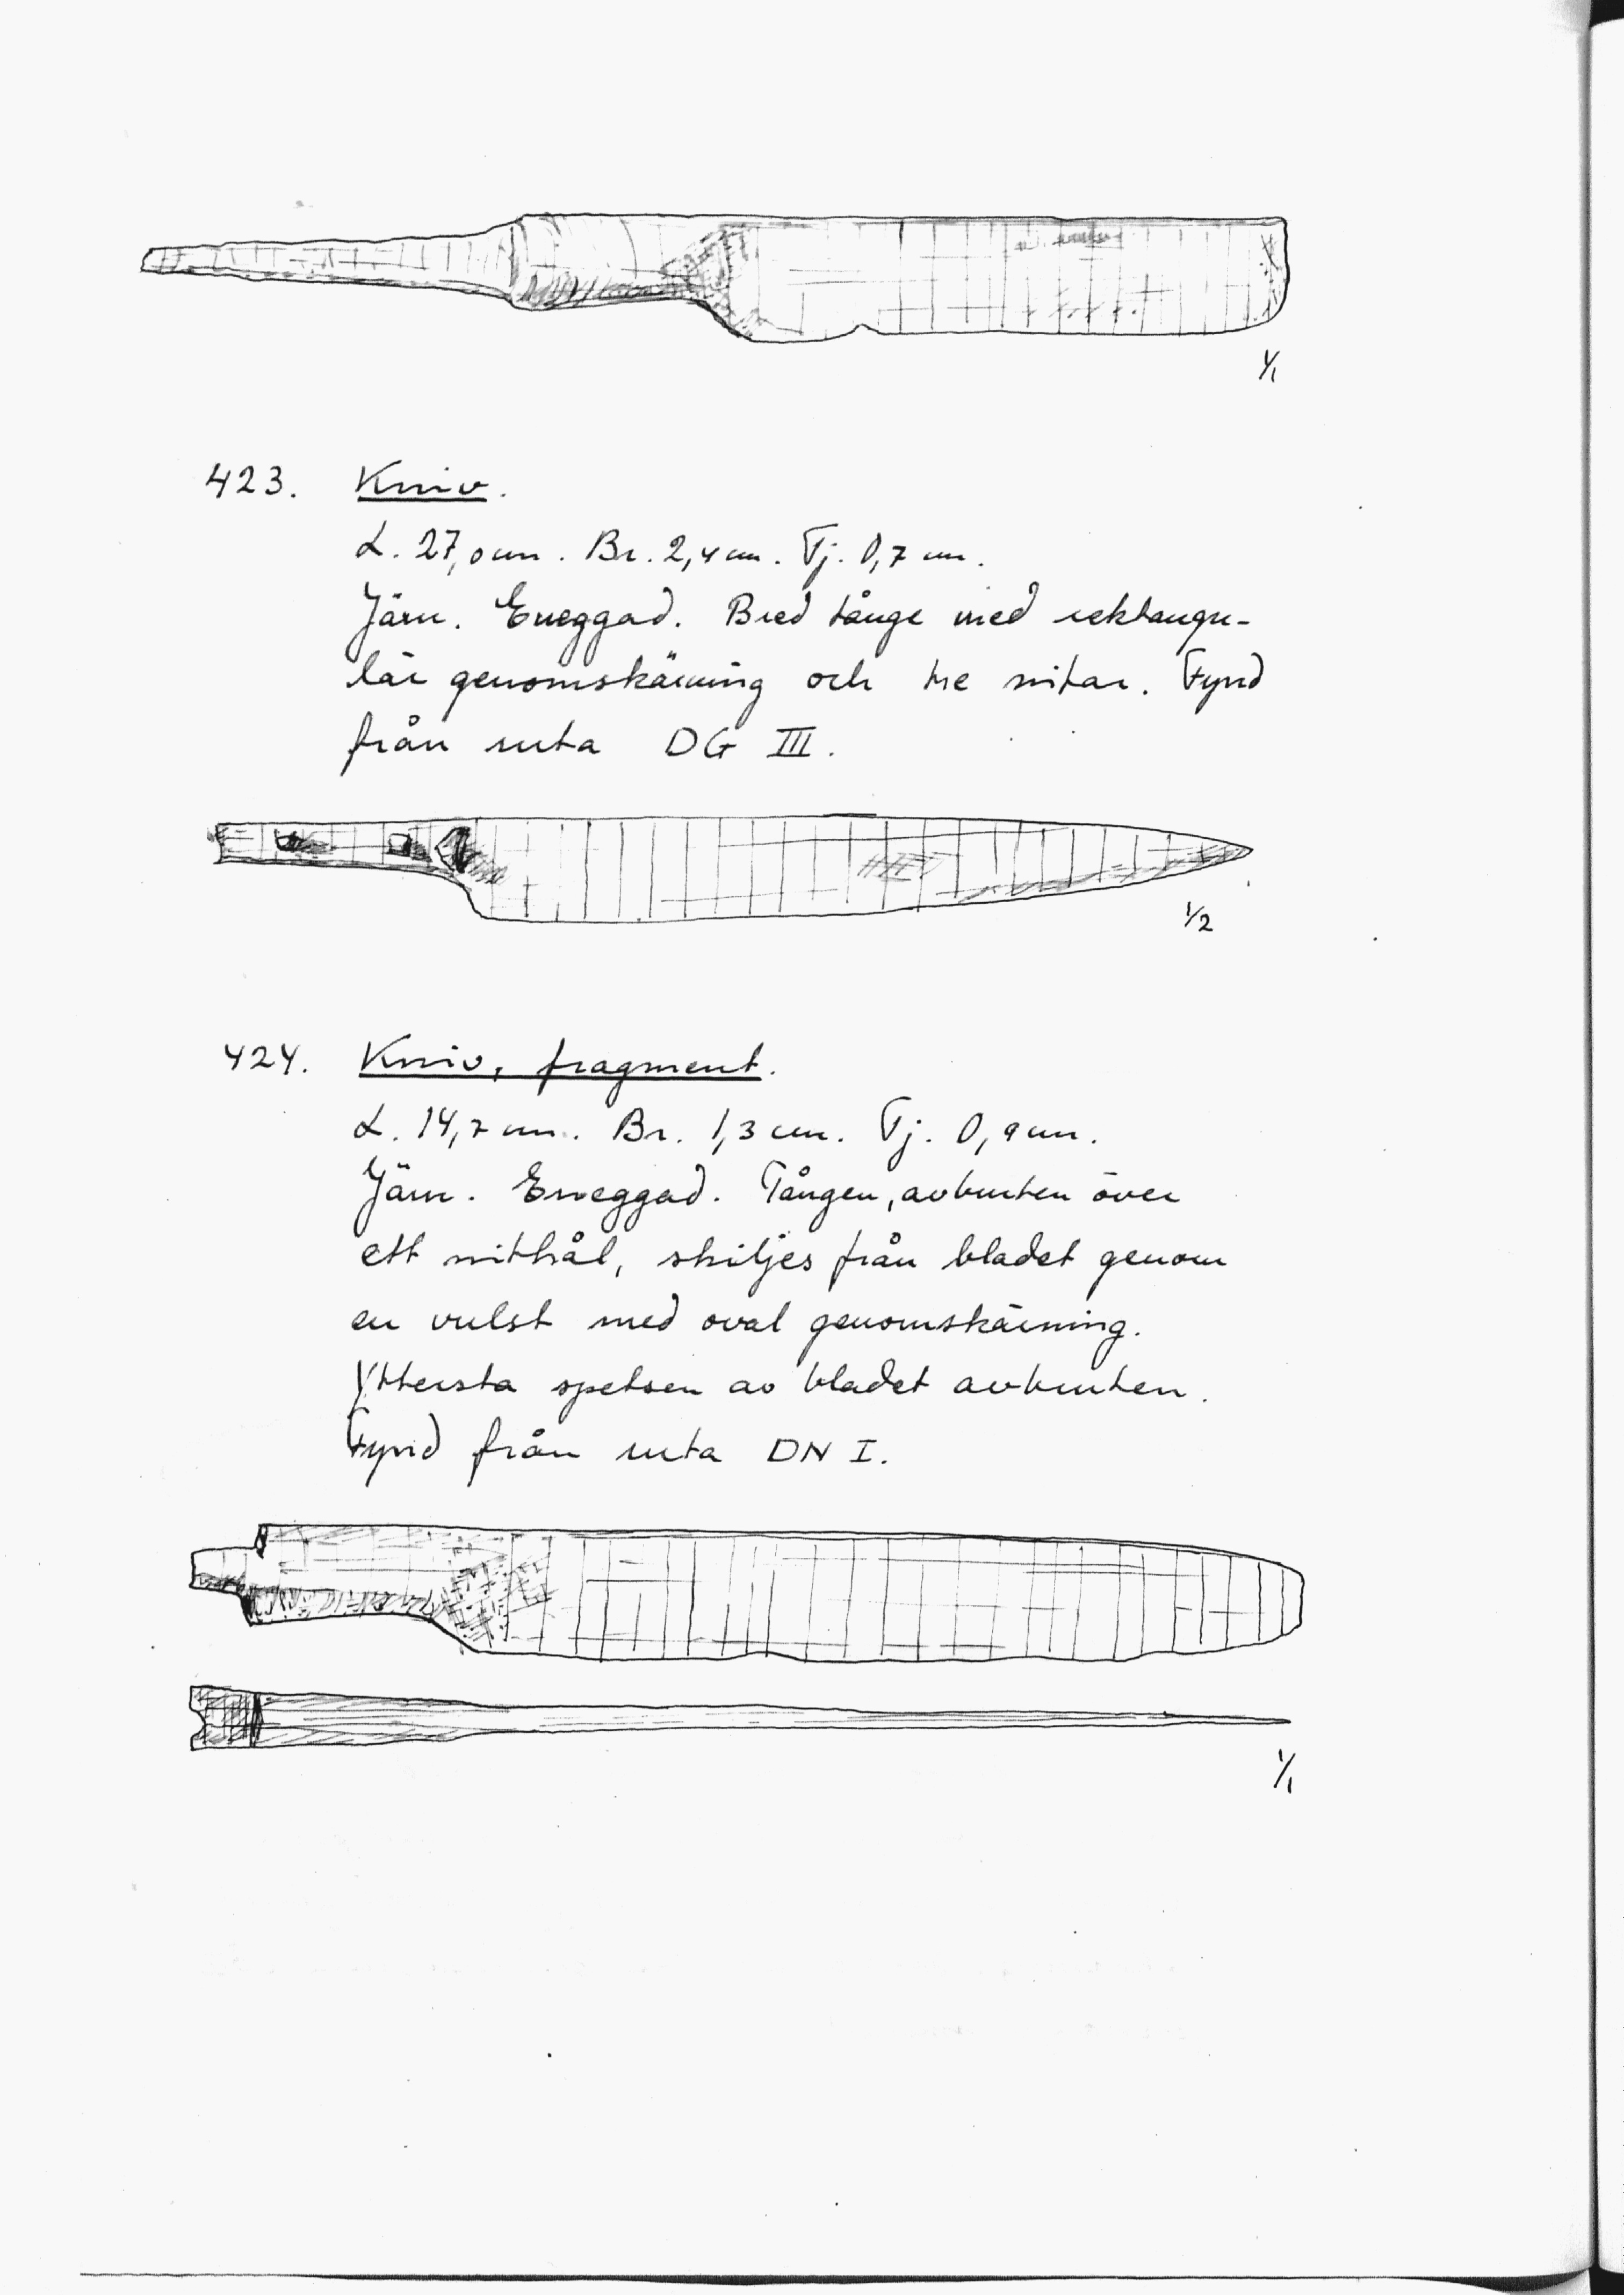 1/1
423. Kniv.
L. 27,0 cm. Br. 2,4 cm. Tj. 0,7 cm.
Järn. Eneggad. Bred tånge med rektangu-
lär genomskärning och tre nitar. Fynd
från ruta DG III.
1/2
424. Kniv, fragment.
L. 14,7 cm. Br. 1,3 cm. Tj. 0,9 cm.
Järn. Eneggad. Tången, avbruten över
ett nithål, skiljes från bladet genom
en vulst med oval genomskärning.
Yttersta spetsen av bladet avbruten.
Fynd från ruta DN I.
1/1